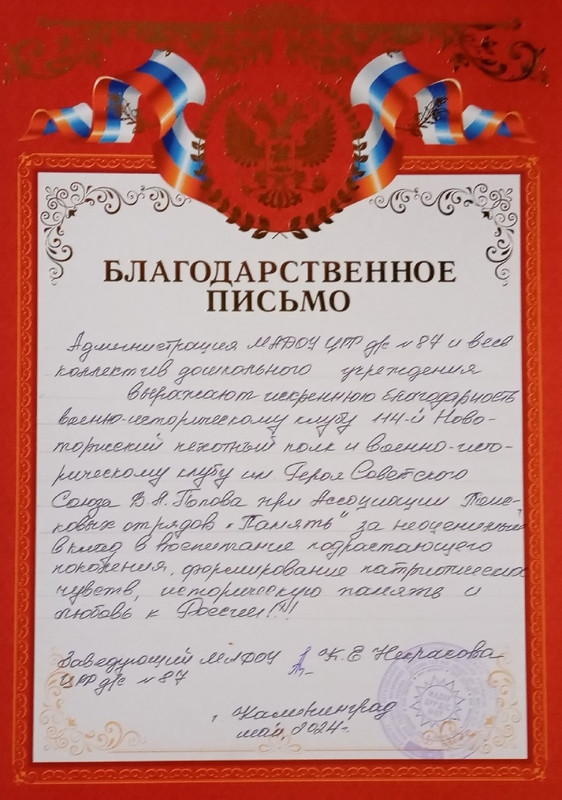 БЛАГОДАРСТВЕННОЕ
ПИСЬМО
Администрация МАДОУ ЦРР д/с №87 и весь
коллектив дошкольного учреждения
выражают искреннюю благодарность
военно-историческому клубу 114-й Ново-
торжский пехотный полк и военно-исто-
рическому клубу им Героя Советского
Союза В.А. Попова при Ассоциации Поис-
ковых отрядов "Память" за неоценимый
вклад в воспитание подрастающего
поколения, формирование патриотических
чувств, историческую память и
любовь к России!!!
Заведующий МАДОУ К.Е Некрасова
ЦРР д/с №87
г. Калининград
май, 2024г.